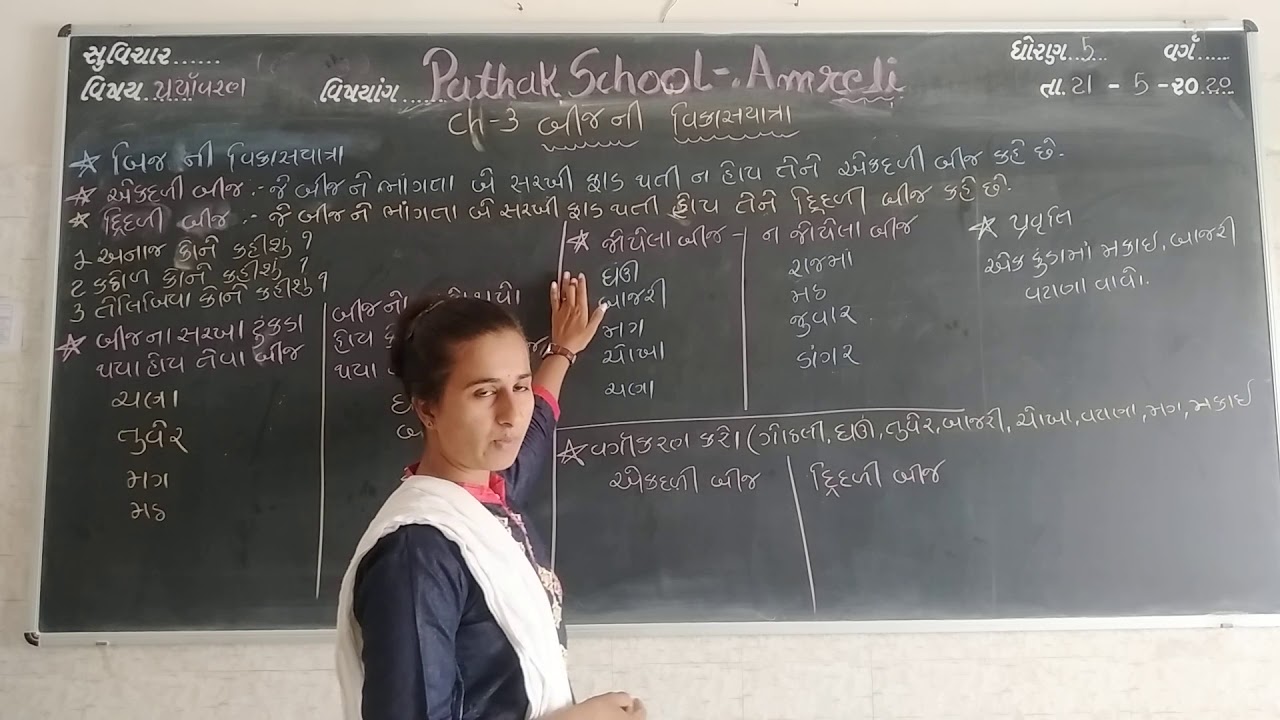 સુવિચાર......
વિષય પર્યાવરણ
વિષયાંગ...... Pathak School-. Amreli
ધોરણ 5
વર્ગ.....
તા. 21 - 5 - 2020
Ch-3 બીજની વિકાસયાત્રા
☆ બિજ ની વિકાસયાત્રા
☆ એકદળી બીજ :- જે બીજ ને ભાંગતા બે સરખી ફાડ થતી ન હોય તેને એકદળી બીજ કહે છે.
☆ દ્વિદળી બીજ :- જે બીજ ને ભાંગતા બે સરખી ફાડ થતી હોય તેને દ્વિદળી બીજ કહે છે.
1 અનાજ કોને કહીશુ ?
2 કઠોળ કોને કહીશુ ?
3 તેલિબિયા કોને કહીશુ ?
☆ બીજના સરખા ટુંકડા
થયા હોય તેવા બીજ
ચણા
તુવેર
મગ
મઠ
બીજનો
હોય
થયા
☆ જોયેલા બીજ - ન જોયેલા બીજ
ઘંઉ
બાજરી
મગ
ચોખા
ચણા
રાજમાં
મઠ
જુવાર
ડાંગર
☆ પ્રવૃતિ
એક કુંડામાં મકાઇ, બાજરી
વટાણા વાવો.
☆ વર્ગીકરણ કરો (ગોઠલી, ઘઉં, તુવેર, બાજરી, ચોખા, વટાણા, મગ, મકાઇ
એકદળી બીજ
દ્વિદળી બીજ